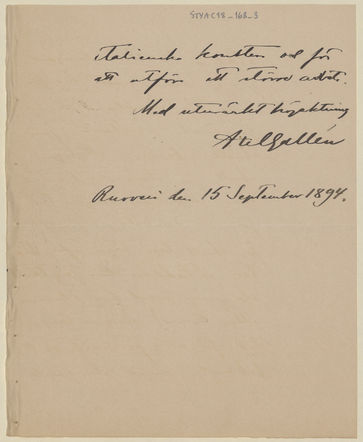 STYAC18_168_3
italienska konsten och för
att utföra ett större arbete.
Med utmärkt högaktning
Axel Gallén
Ruovesi den 15 September 1894.